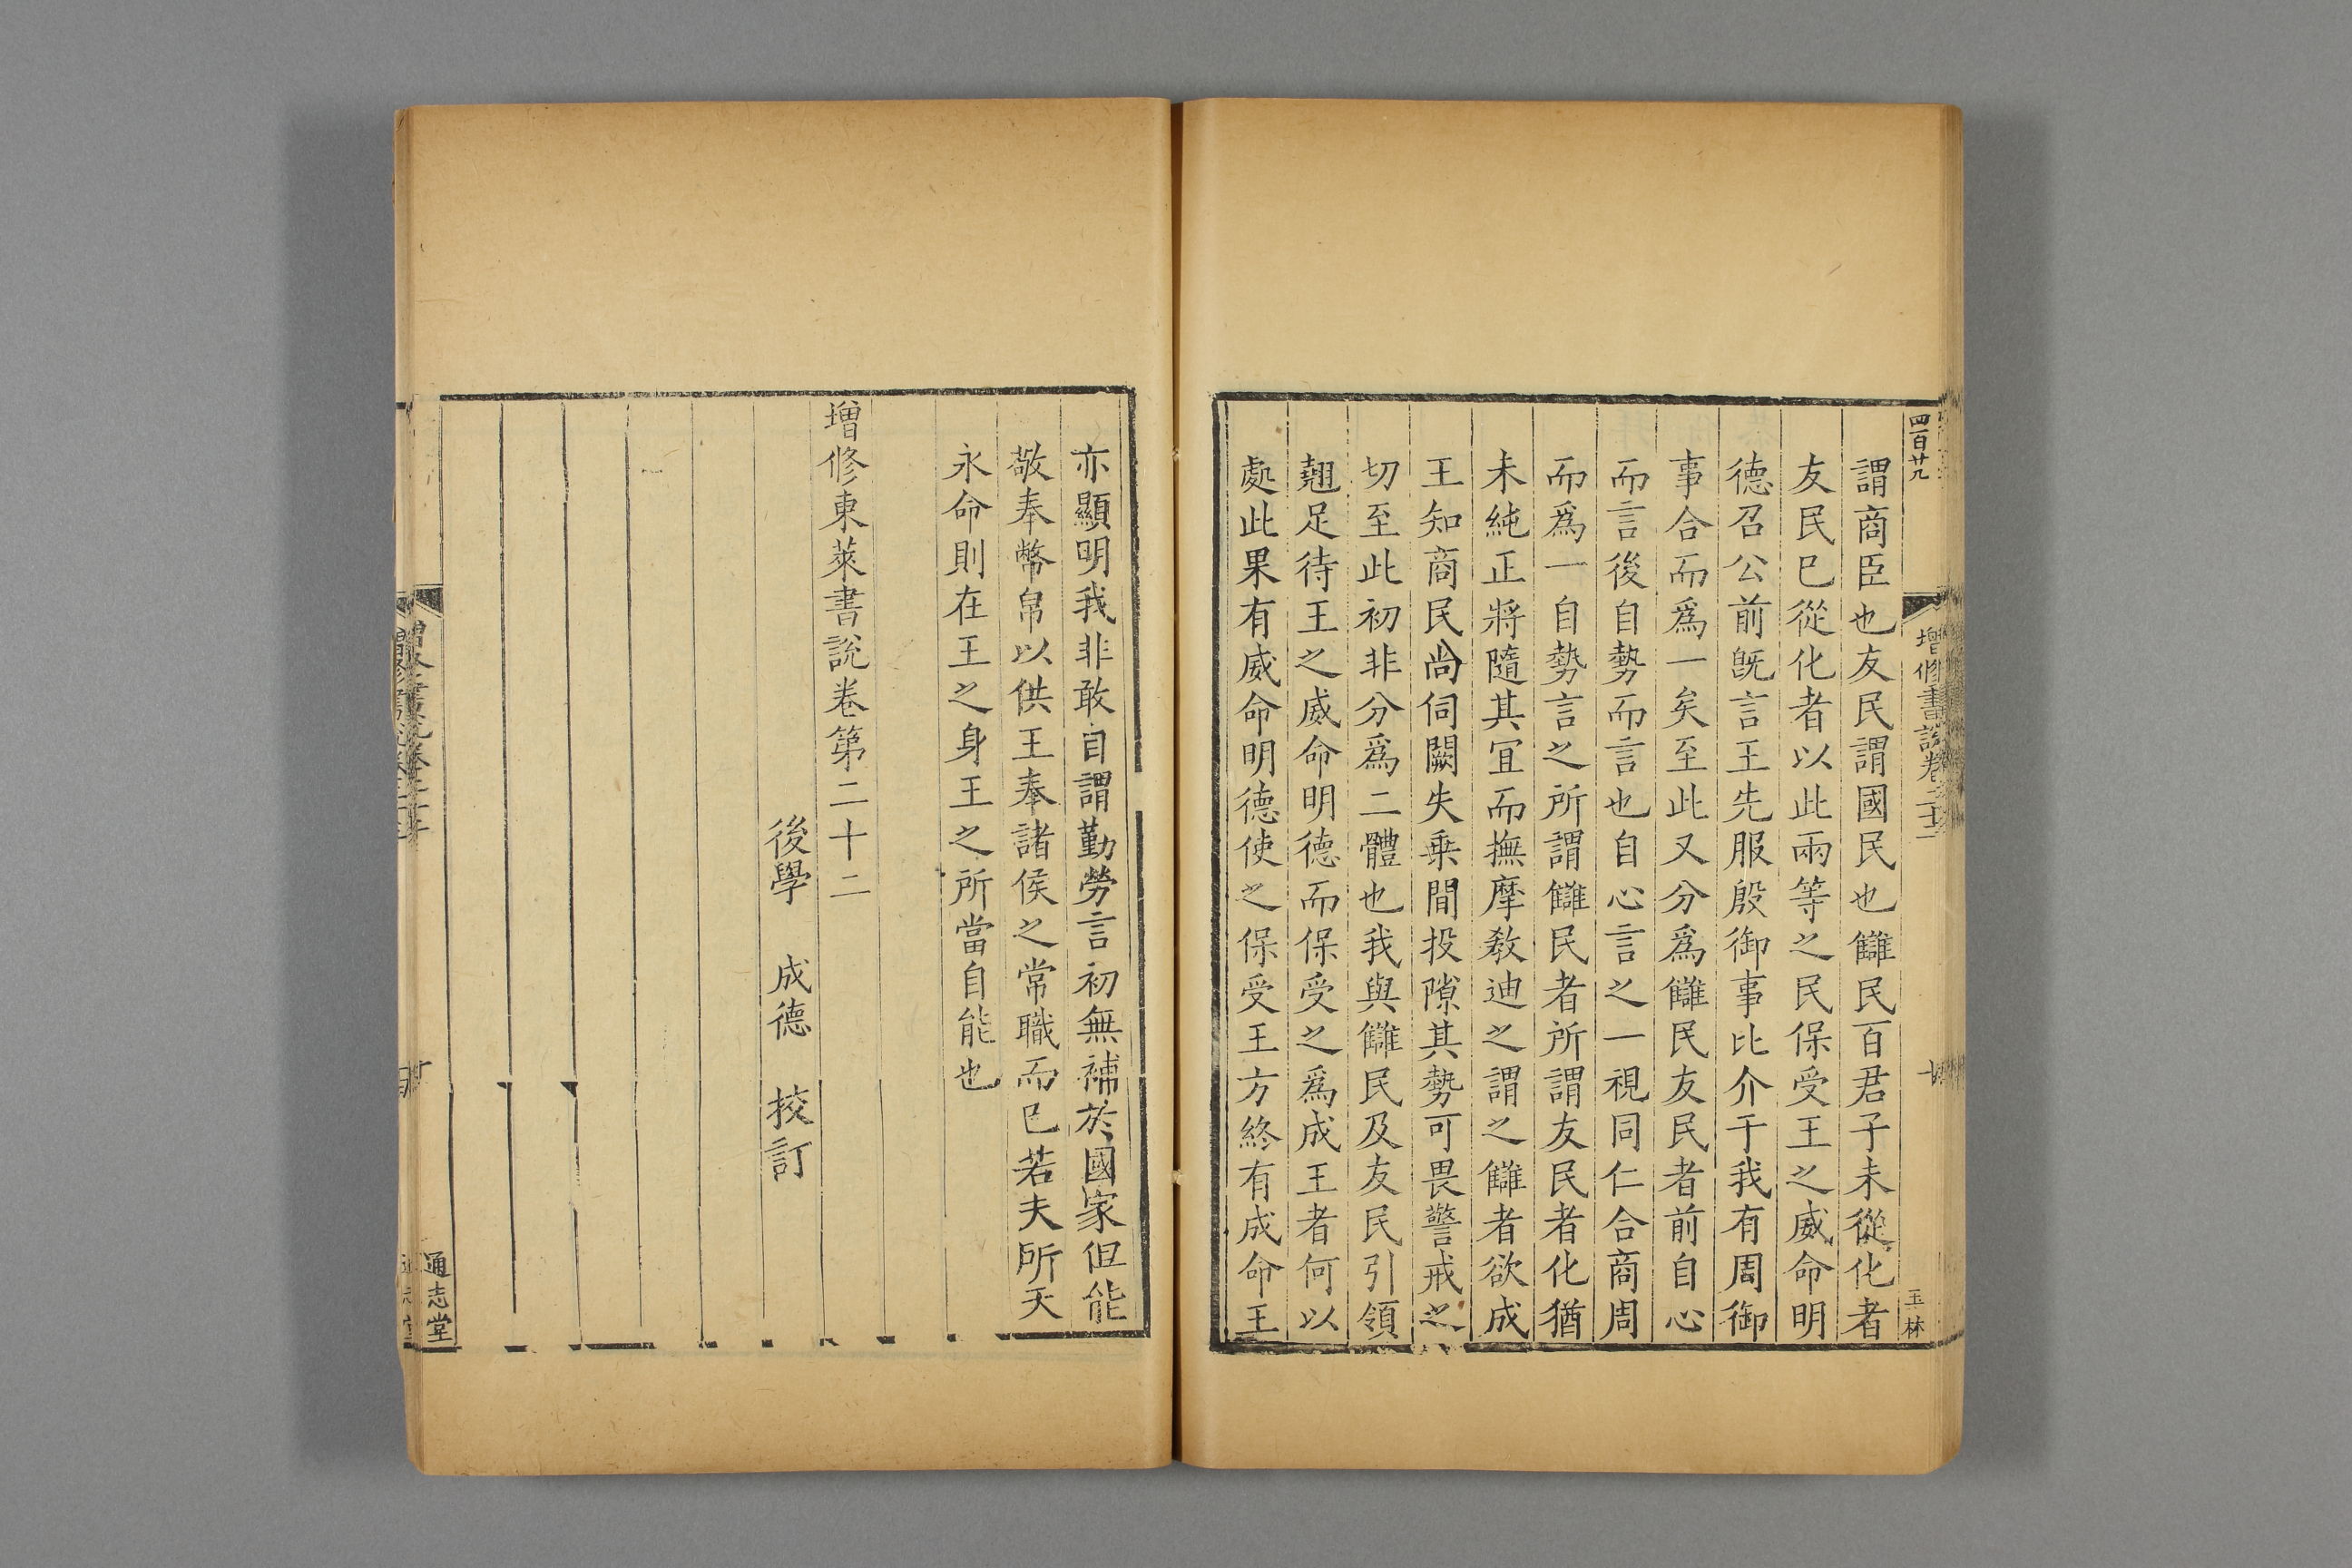 四百廿九
增修書說卷二十二
玉林
謂商臣也友民謂國民也讎民百君子未從化者
友民已從化者以此兩等之民保受王之威命明
德召公前旣言王先服殷御事比介于我有周御
事合而爲一矣至此又分爲讎民友民者前自心
而言後自勢而言也自心言之一視同仁合商周
而爲一自勢言之所謂讎民者所謂友民者化猶
未純正將隨其宜而撫摩敎迪之謂之讎者欲成
王知商民尚伺闕失乗間投隙其勢可畏警戒之
切至此初非分爲二體也我與讎民及友民引領
翹足待王之威命明德而保受之爲成王者何以
處此果有威命明德使之保受王方終有成命王
亦顯明我非敢自謂勤勞言初無補於國家但能
敬奉幣帛以供王奉諸侯之常職而已若夫所天
永命則在王之身王之所當自能也
增修東萊書說卷第二十二
後學 成德 挍訂
通志堂